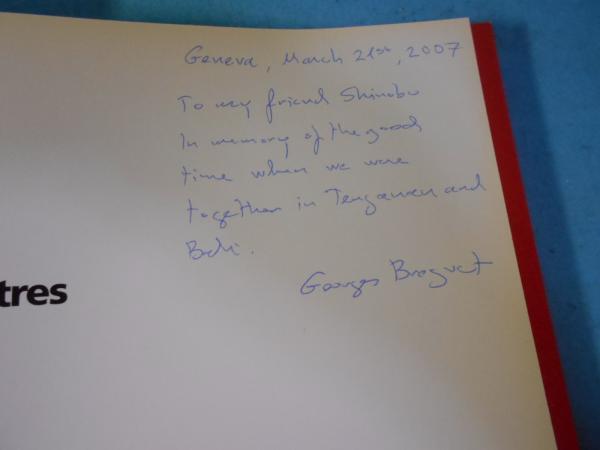 Geneva, March 21st, 2007
To my friend Shinobu
In memory of the good
time when we were
together in Tenganan and
Bali.
Georges Breguet
tres